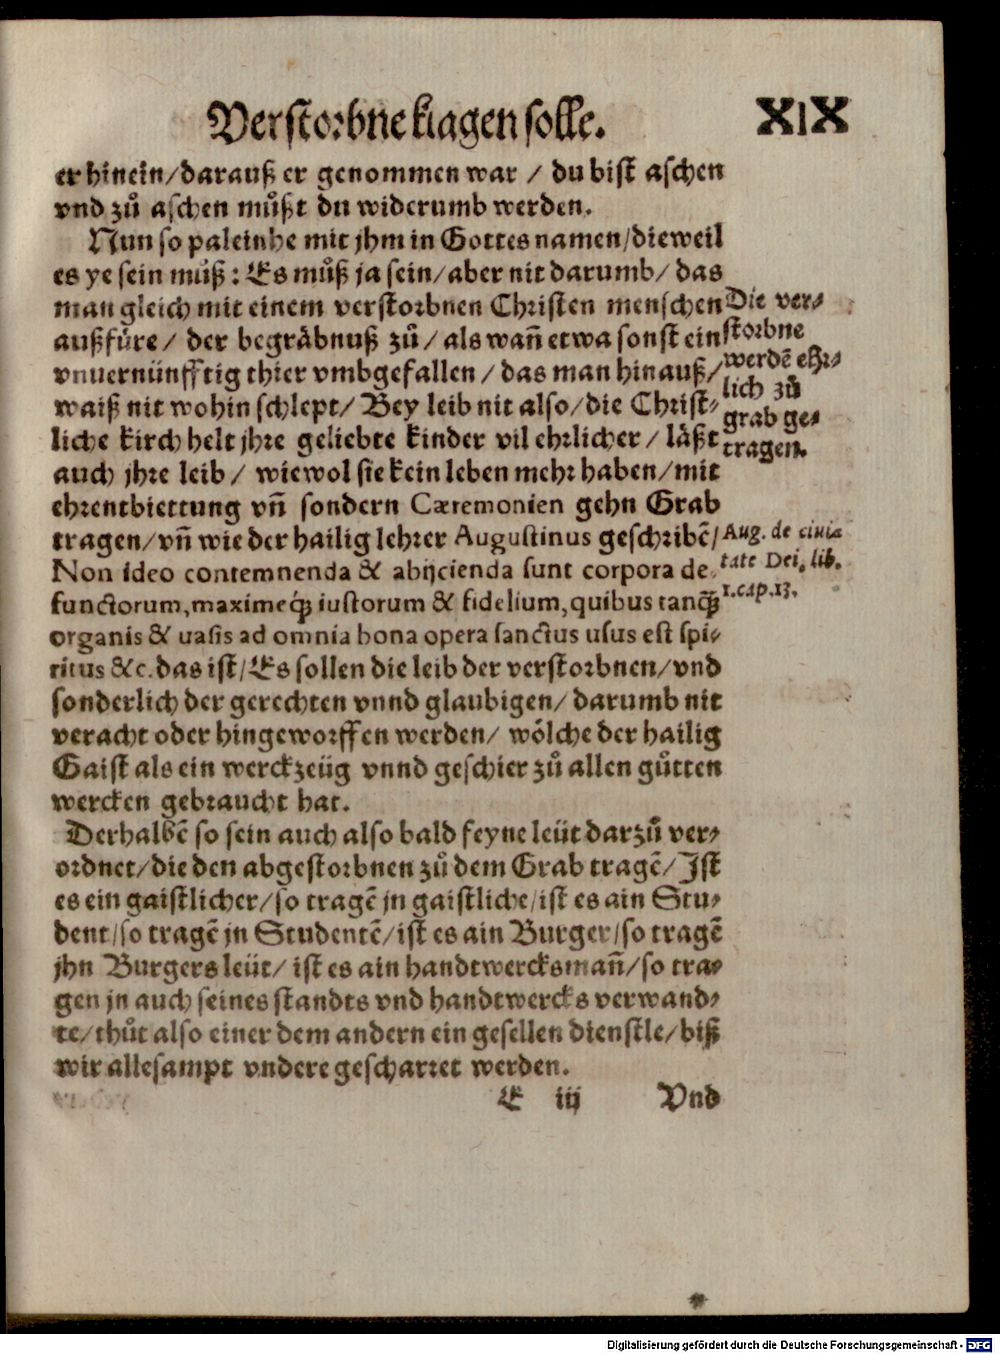 Verstorbne klagen solle. XIX
er hinein/darauß er genommen war / du bist aschen
vnd zů aschen můßt du widerumb werden.
Nun so paleinhe mit jhm in Gottes namen/dieweil
es ye sein můß: Es můß ja sein/aber nit darumb/ das
man gleich mit einem verstorbnen Christen menschen
außfüre/ der begräbnuß zů/als wañ etwa sonst ein
vnuernünfftig thier vmbgefallen/das man hinauß/
waiß nit wohin schlept/ Bey leib nit also/die Christ-
liche kirch helt jhre geliebte kinder vil ehrlicher/ läßt
auch jhre leib/ wiewol sie kein leben mehr haben/mit
ehrentbiettung vñ sondern Cæremonien gehn Grab
tragen/vñ wie der hailig lehrer Augustinus geschribē/
Non ideo contemnenda & abijcienda sunt corpora de
functorum,maximeq́; iustorum & fidelium,quibus tanq̃;
organis & uasis ad omnia bona opera sanctus usus est spi-
ritus &c.das ist/Es sollen die leib der verstorbnen/vnd
sonderlich der gerechten vnnd glaubigen/ darumb nit
veracht oder hingeworffen werden/ wölche der hailig
Gaist als ein werckzeüg vnnd geschier zů allen gůtten
wercken gebraucht hat.
Derhalbē so sein auch also bald feyne leüt darzů ver-
ordnet/die den abgestorbnen zů dem Grab tragē/Ist
es ein gaistlicher/so tragē jn gaistliche/ist es ain Stu-
dent/so tragē jn Studentē/ist es ain Burger/so tragē
jhn Burgers leüt/ ist es ain handtwercksmañ/so tra-
gen jn auch seines standts vnd handtwercks verwand-
te/thůt also einer dem andern ein gesellen dienstle/biß
wir allesampt vndere gescharret werden.
E iij Vnd
Die ver-
storbne
werdē ehr-
lich zů
grab ge-
tragen.
Aug. de ciuita
tate Dei, lib.
1.cap.13.
Digitalisierung gefördert durch die Deutsche Forschungsgemeinschaft - DFG